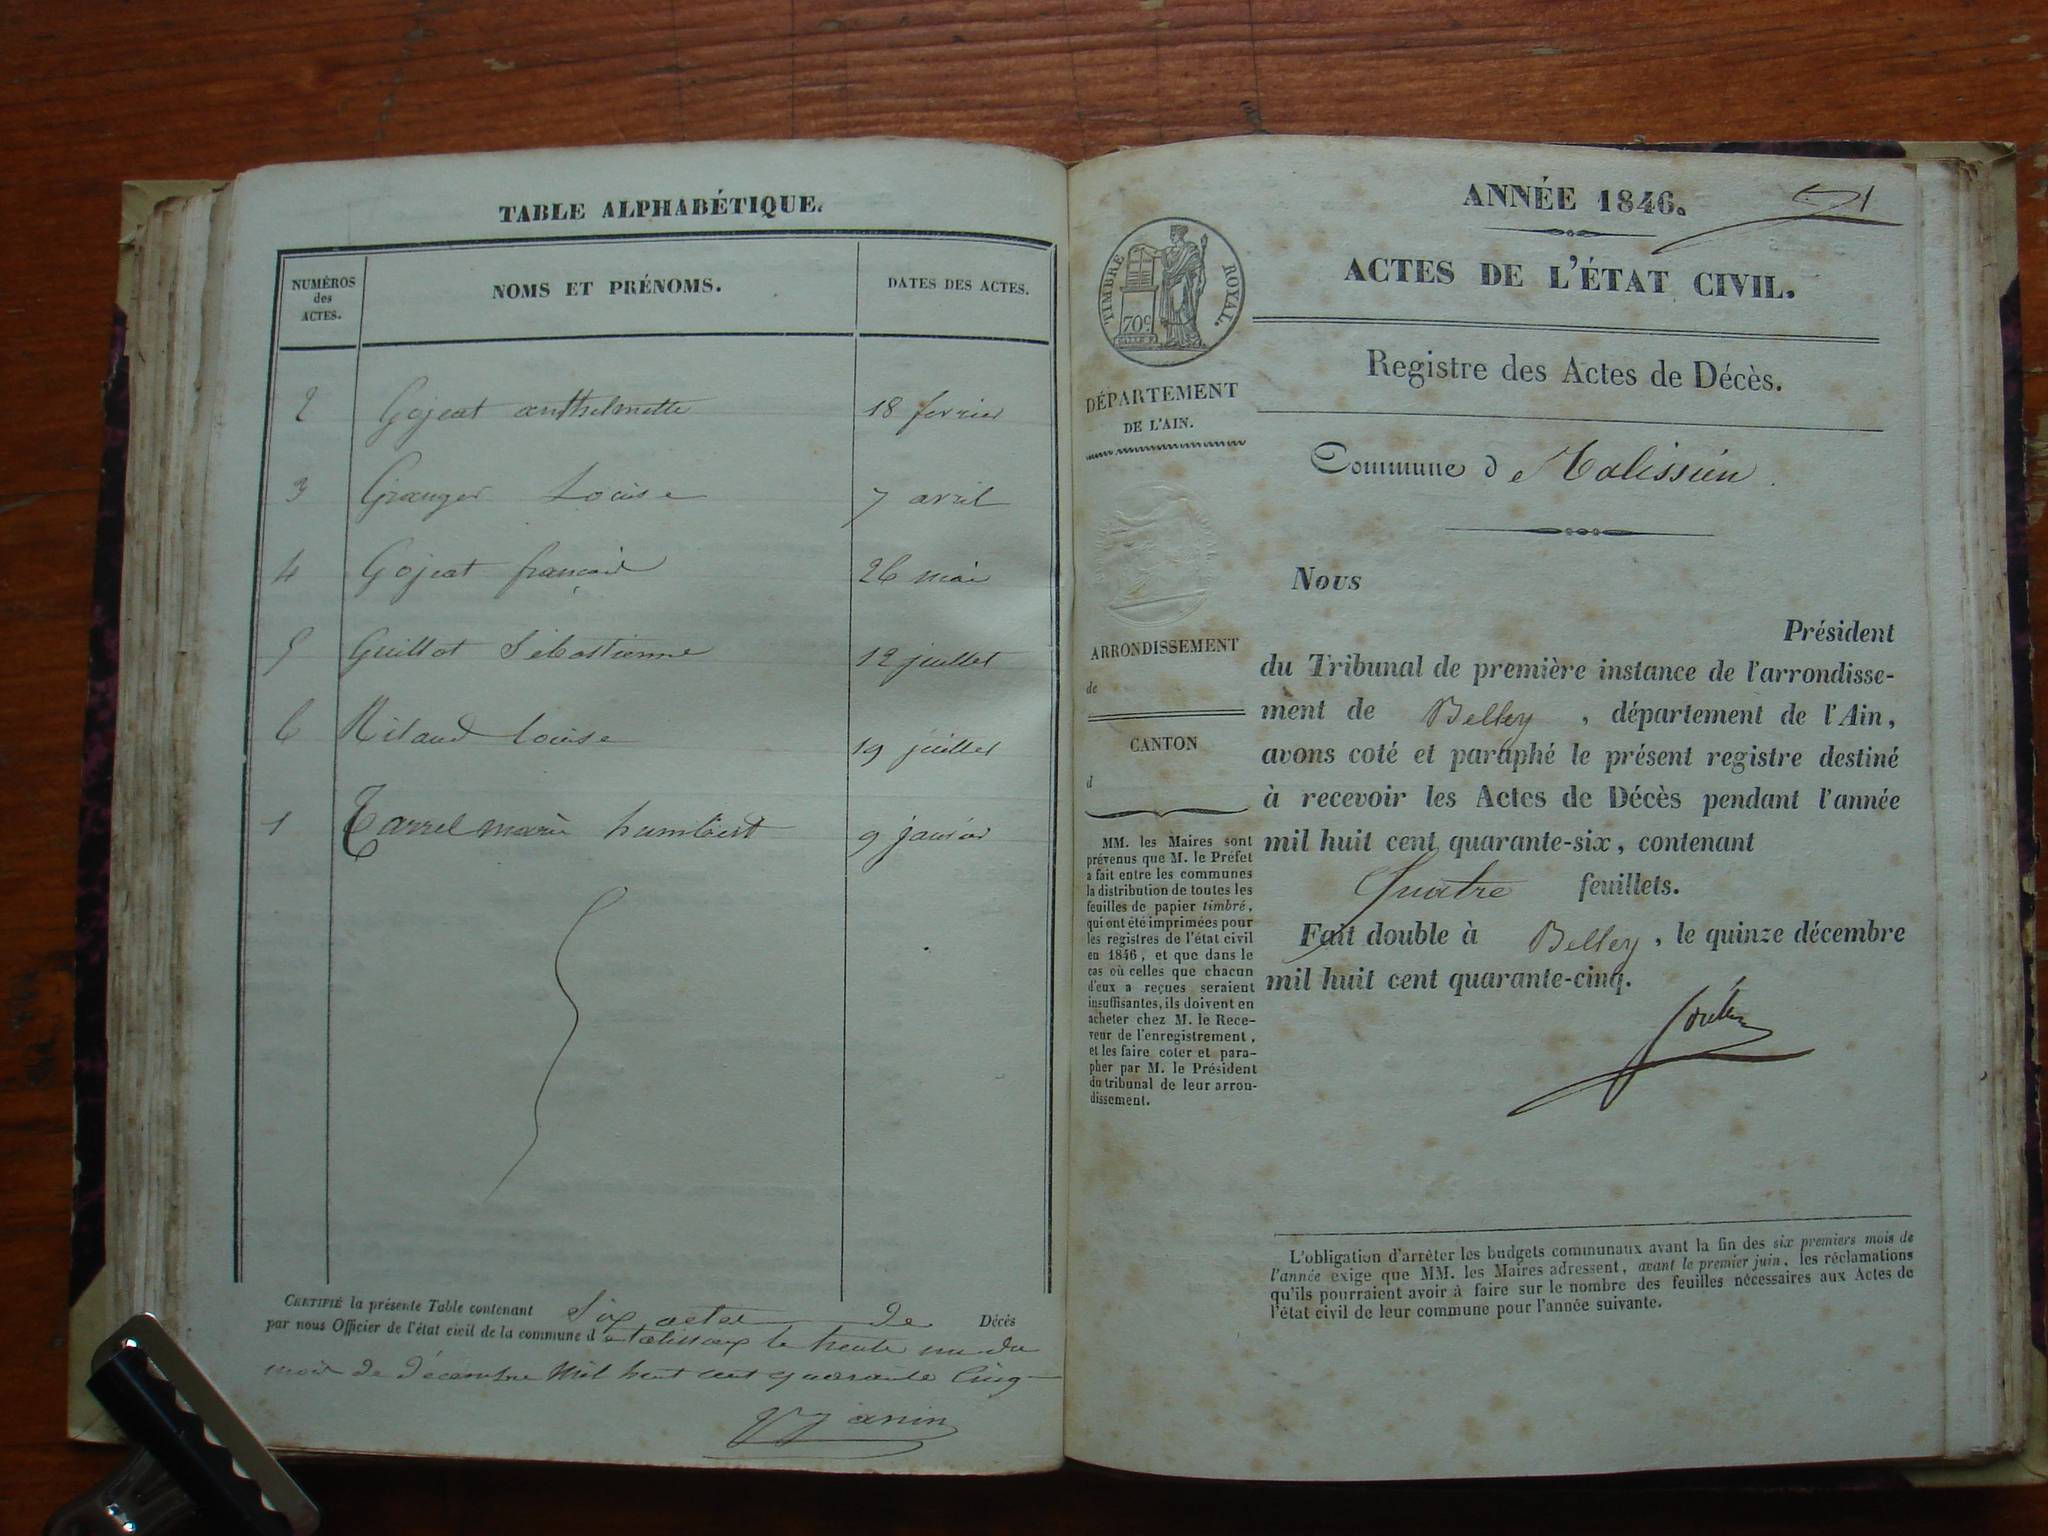 TABLE ALPHABÉTIQUE.
NUMÉROS
des
ACTES.
NOMS ET PRÉNOMS.
DATES DES ACTES.
2 Gojeat anthelmette 18 fevrier
3 Granger Louise 7 avril
4 Gojeat françois 26 mai
5 Guillot Sébastienne 12 juillet
6 Ritaud louise 19 juillet
1 Tarrel marie humbert 9 janvier
CERTIFIÉ la présente Table contenant Six actes de Décès
par nous Officier de l'état civil de la commune de le trente un du
mois de décembre Mil huit cent quarante Cinq
Janin
ANNÉE 1846.
ACTES DE L'ÉTAT CIVIL.
Registre des Actes de Décès.
Commune de
Nous
Président
du Tribunal de première instance de l'arrondisse-
ment de Belley, département de l'Ain,
avons coté et paraphé le présent registre destiné
à recevoir les Actes de Décès pendant l'année
mil huit cent quarante-six, contenant
Quatre feuillets.
Fait double à Belley, le quinze décembre
mil huit cent quarante-cinq.
L'obligation d'arrêter les budgets communaux avant la fin des six premiers mois de
l'année exige que MM. les Maires adressent, avant le premier juin, les réclamations
qu'ils pourraient avoir à faire sur le nombre des feuilles nécessaires aux Actes de
l'état civil de leur commune pour l'année suivante.
TIMBRE ROYAL.
70c
DÉPARTEMENT
DE L'AIN.
ARRONDISSEMENT
de
CANTON
d
MM. les Maires sont
prévenus que M. le Préfet
a fait entre les communes
la distribution de toutes les
feuilles de papier timbré,
qui ont été imprimées pour
les registres de l'état civil
en 1846, et que dans le
cas où celles que chacun
d'eux a reçues seraient
insuffisantes, ils doivent en
acheter chez M. le Rece-
veur de l'enregistrement,
et les faire coter et para-
pher par M. le Président
du tribunal de leur arron-
dissement.